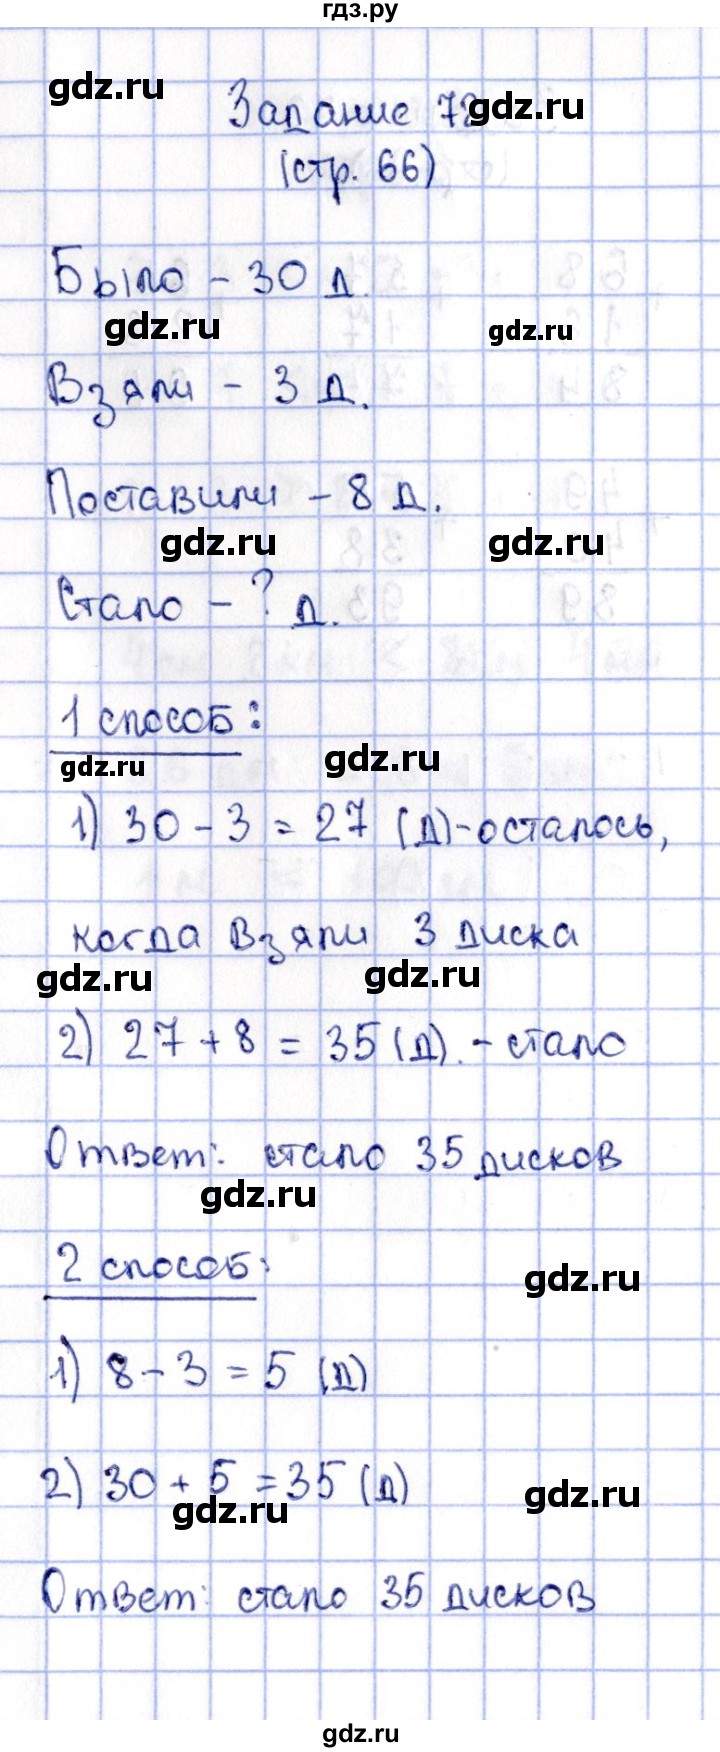 гдз.ру
gdz.ru
Задание 72 gdz.ru
(стр. 66)
Было - 30 д.
gdz.ru gdz.ru
Взяли - 3 д.
Поставили - 8 д.
gdz.ru gdz.ru
Стало - ? д.
1 способ:
gdz.ru gdz.ru
1) 30 - 3 = 27 (д) - осталось,
когда взяли 3 диска
gdz.ru gdz.ru
2) 27 + 8 = 35 (д). - стало
Ответ: стало 35 дисков
gdz.ru
2 способ:
gdz.ru
1) 8 - 3 = 5 (д)
2) 30 + 5 = 35 (д)
gdz.ru gdz.ru
Ответ: стало 35 дисков
gdz.ru